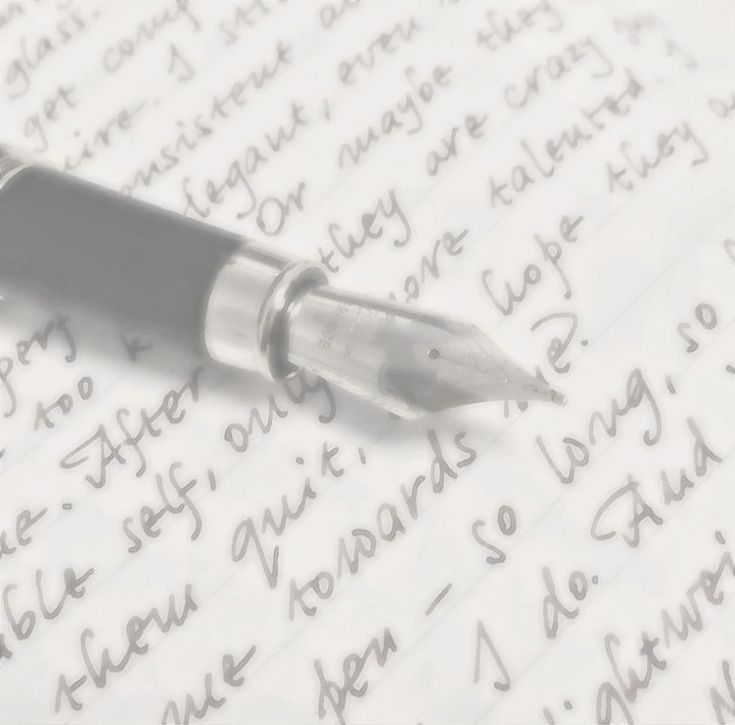 glass.
get comp
uire. I sti
onsistent a
legant, even
Or maybe they
they are crazy
ore talented. I
hope they a
me?
pers
too
me. After
able self, only
them quit,
me towards
pen – so long, so
I do. And
lightwei